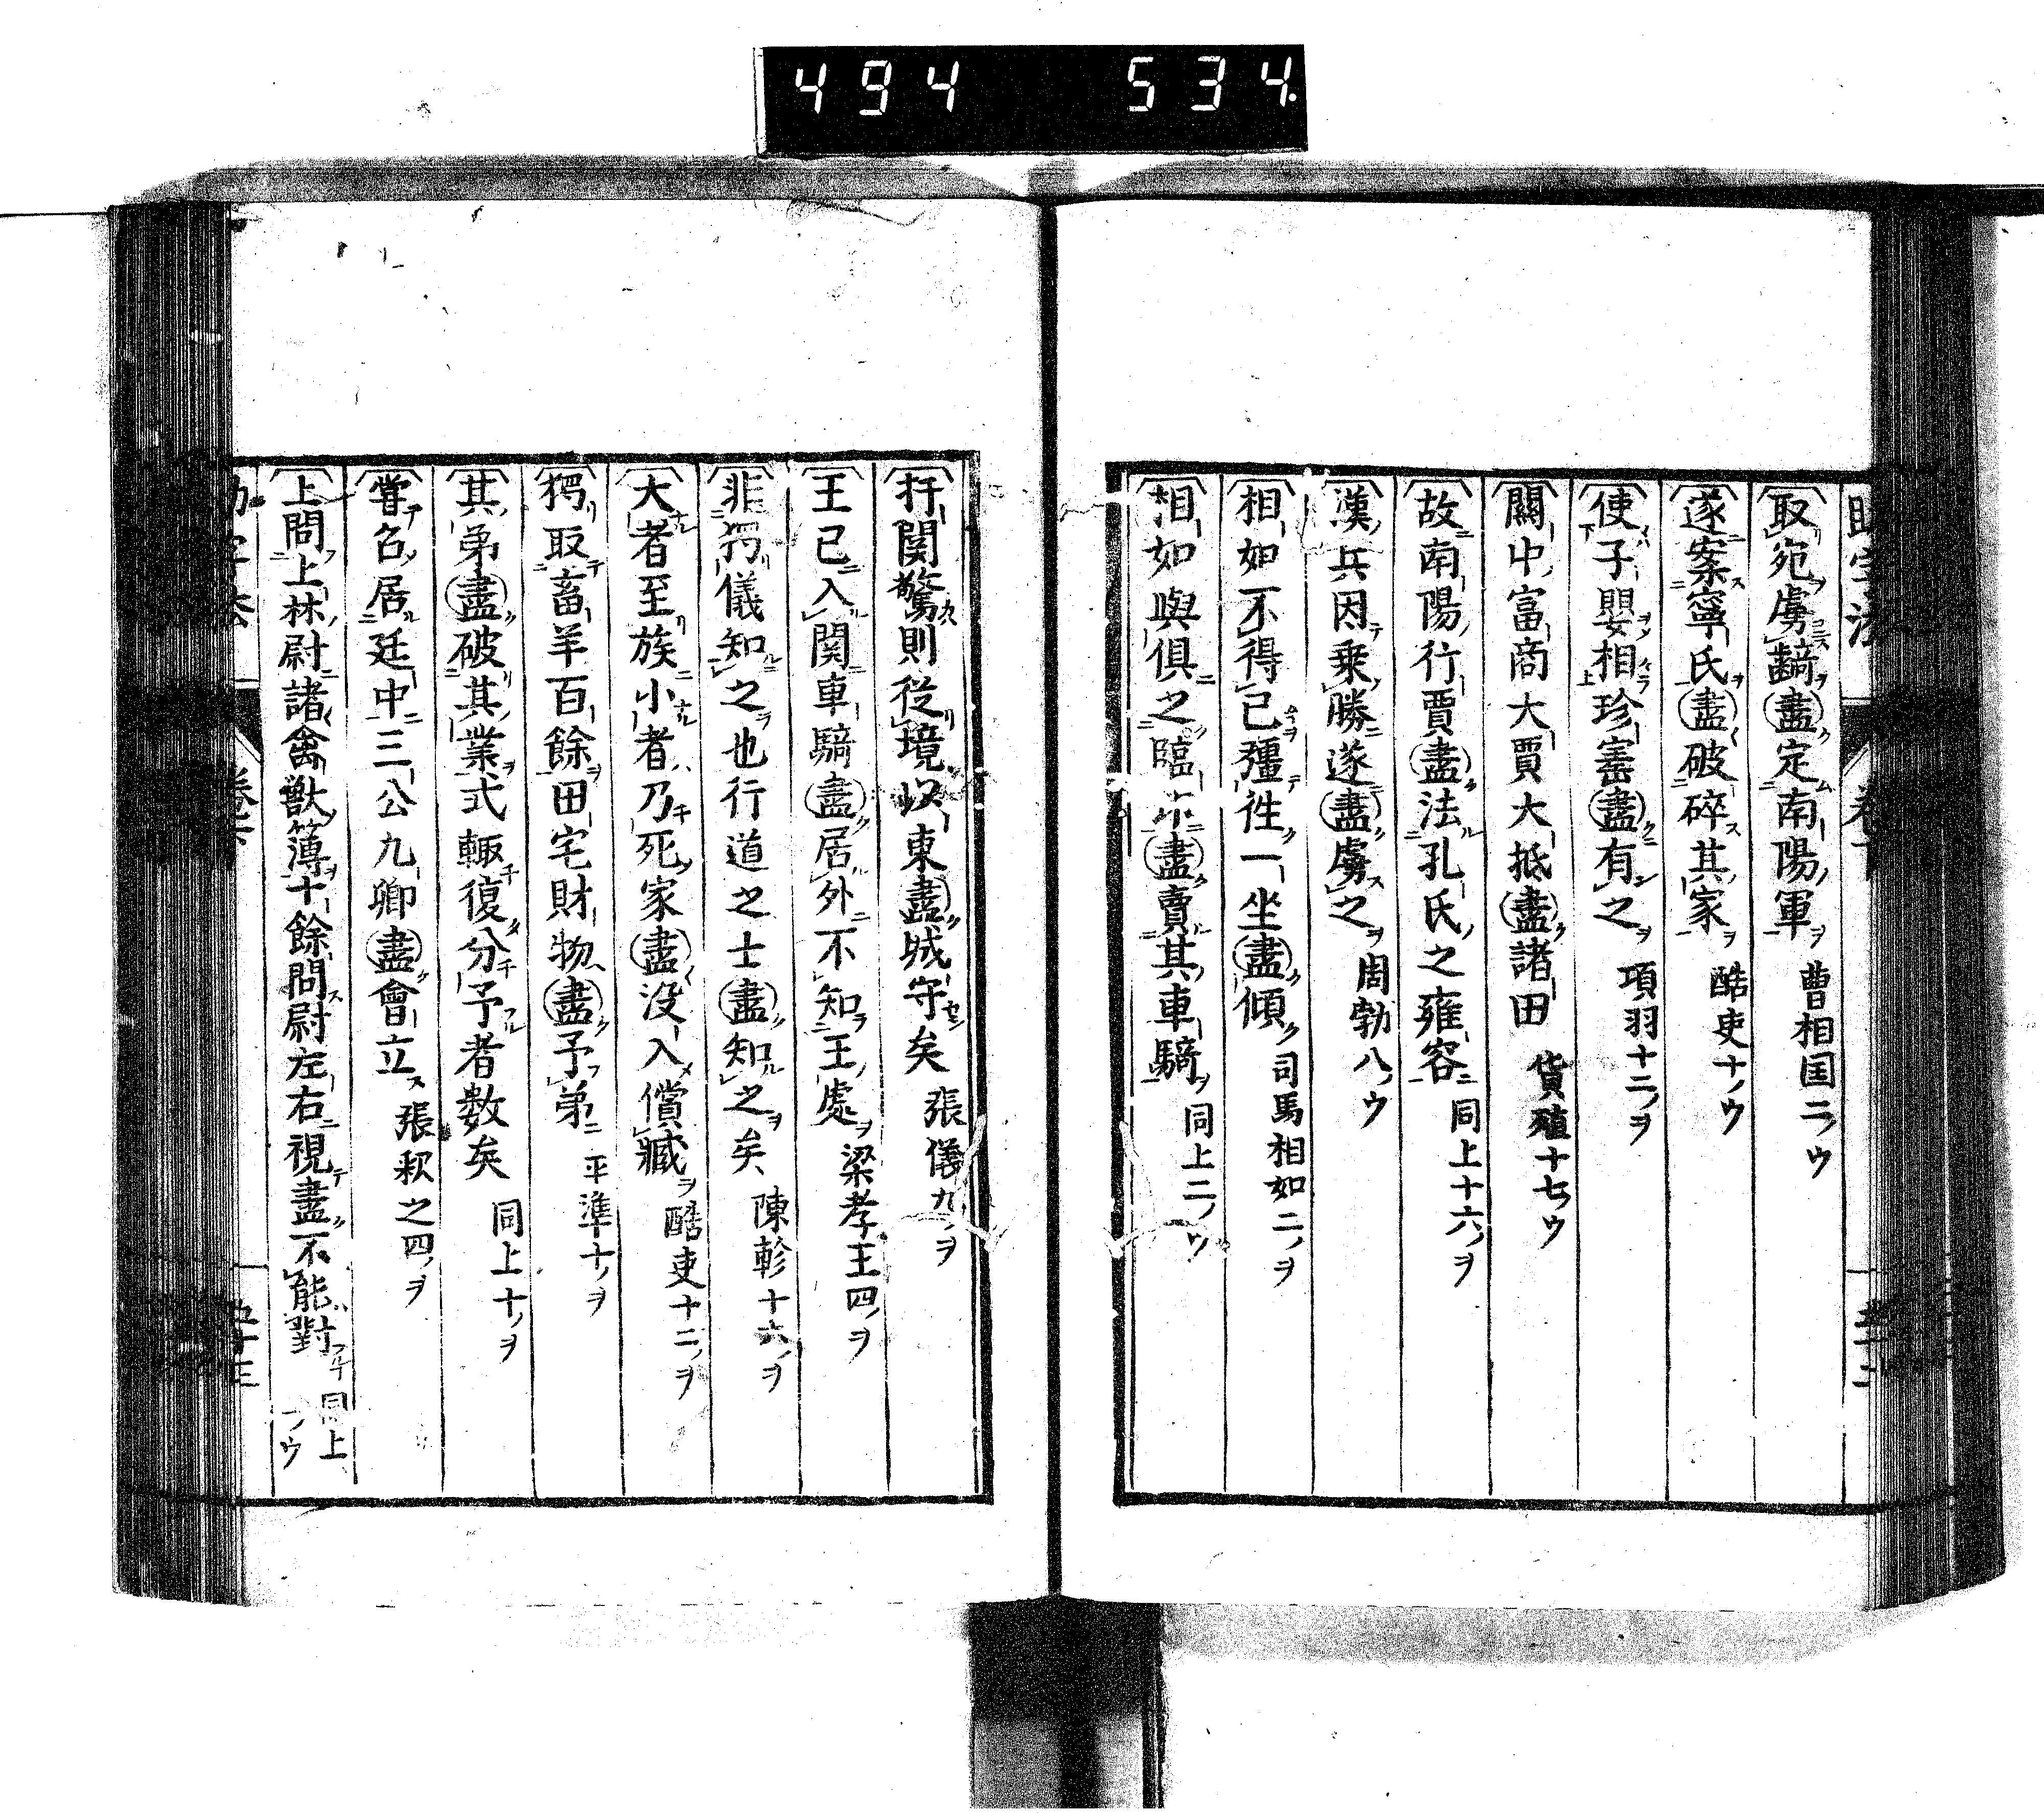 494 534
取宛虜齮盡定南陽軍 曹相国二ノウ
遂案寧氏盡破碎其家 酷吏十ノウ
使子嬰相珍寚盡有之 項羽十二ノヲ
關中富商大賈大抵盡諸田 貨殖十七ノウ
故南陽行賈盡法孔氏之雍容 同上十六ノヲ
漢兵因乗勝遂盡虜之 周勃八ノウ
相如不得已彊徃一坐盡傾 司馬相如二ノヲ
相如與俱之臨卭盡賣其車騎 同上二ノウ
扞関驚則從境以東盡城守矣 張儀九ノヲ
王已入関車騎盡居外不知王處 梁孝王四ノヲ
非獨儀知之也行道之士盡知之矣 陳軫十六ノヲ
大者至族小者乃死家盡没入償臧 酷吏十二ノヲ
獨取畜羊百餘田宅財物盡予弟 平準十ノヲ
其弟盡破其業式輙復分予者数矣 同上十ノヲ
甞召居廷中三公九卿盡會立 張釈之四ノヲ
上問上林尉諸禽獣簿十餘問尉左右視盡不能對 同上一ノウ